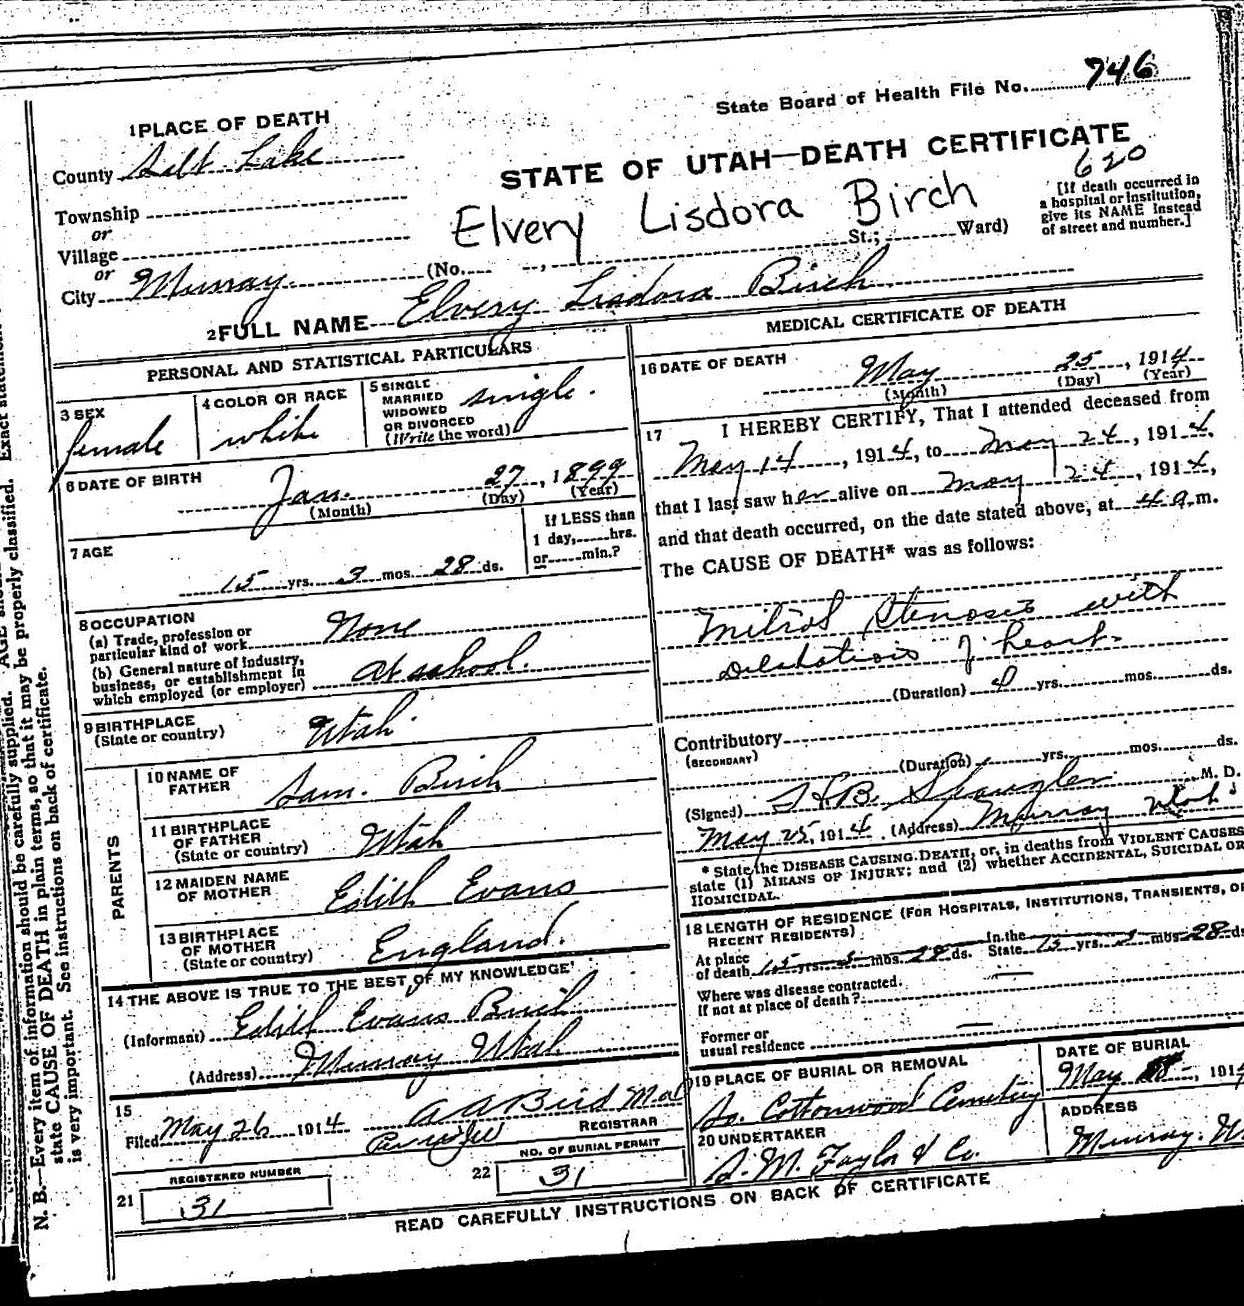 State Board of Health File No. 746
1 PLACE OF DEATH
County Salt Lake
STATE OF UTAH—DEATH CERTIFICATE
620
Township
or
Village
or
City Murray (No. St.; Ward)
Elvery Lisdora Birch
[If death occurred in
a hospital or institution,
give its NAME instead
of street and number.]
2 FULL NAME Elvery Lisdora Birch
PERSONAL AND STATISTICAL PARTICULARS
3 SEX
female
4 COLOR OR RACE
white
5 SINGLE
MARRIED
WIDOWED
OR DIVORCED
(Write the word)
single.
6 DATE OF BIRTH
Jan. 27, 1899
(Month) (Day) (Year)
7 AGE
15 yrs. 3 mos. 28 ds.
If LESS than
1 day, hrs.
or min.?
8 OCCUPATION
(a) Trade, profession or
particular kind of work None
(b) General nature of industry,
business, or establishment in
which employed (or employer) at school.
9 BIRTHPLACE
(State or country) Utah
PARENTS
10 NAME OF
FATHER Sam. Birch
11 BIRTHPLACE
OF FATHER
(State or country) Utah
12 MAIDEN NAME
OF MOTHER Edith Evans
13 BIRTHPLACE
OF MOTHER
(State or country) England.
14 THE ABOVE IS TRUE TO THE BEST OF MY KNOWLEDGE
(Informant) Edith Evans Birch
(Address) Murray Utah
15
Filed May 26 1914 A A Bird
REGISTRAR
21 REGISTERED NUMBER
31
22 NO. OF BURIAL PERMIT
31
MEDICAL CERTIFICATE OF DEATH
16 DATE OF DEATH
May 25, 1914
(Month) (Day) (Year)
17 I HEREBY CERTIFY, That I attended deceased from
May 14, 1914, to May 24, 1914,
that I last saw her alive on May 24, 1914,
and that death occurred, on the date stated above, at 4 a.m.
The CAUSE OF DEATH* was as follows:
Mitral Stenosis with
Dilatation of heart
(Duration) yrs. mos. ds.
Contributory
(SECONDARY)
(Duration) yrs. mos. ds.
(Signed) H B. Spangler M. D.
May 25, 1914. (Address) Murray Utah
* State the DISEASE CAUSING DEATH, or, in deaths from VIOLENT CAUSES
state (1) MEANS OF INJURY; and (2) whether ACCIDENTAL, SUICIDAL OR
HOMICIDAL.
18 LENGTH OF RESIDENCE (FOR HOSPITALS, INSTITUTIONS, TRANSIENTS, OR
RECENT RESIDENTS)
At place
of death 15 yrs. 3 mos. 28 ds.
In the
State 15 yrs. 3 mos 28 ds
Where was disease contracted.
If not at place of death?
Former or
usual residence
19 PLACE OF BURIAL OR REMOVAL
So. Cottonwood Cemetery
DATE OF BURIAL
May , 1914
20 UNDERTAKER
S. M. Taylor & Co.
ADDRESS
Murray.
READ CAREFULLY INSTRUCTIONS ON BACK OF CERTIFICATE
N. B.—Every item of information should be carefully supplied.
state CAUSE OF DEATH in plain terms, so that it may be properly classified. Exact
is very important. See instructions on back of certificate.